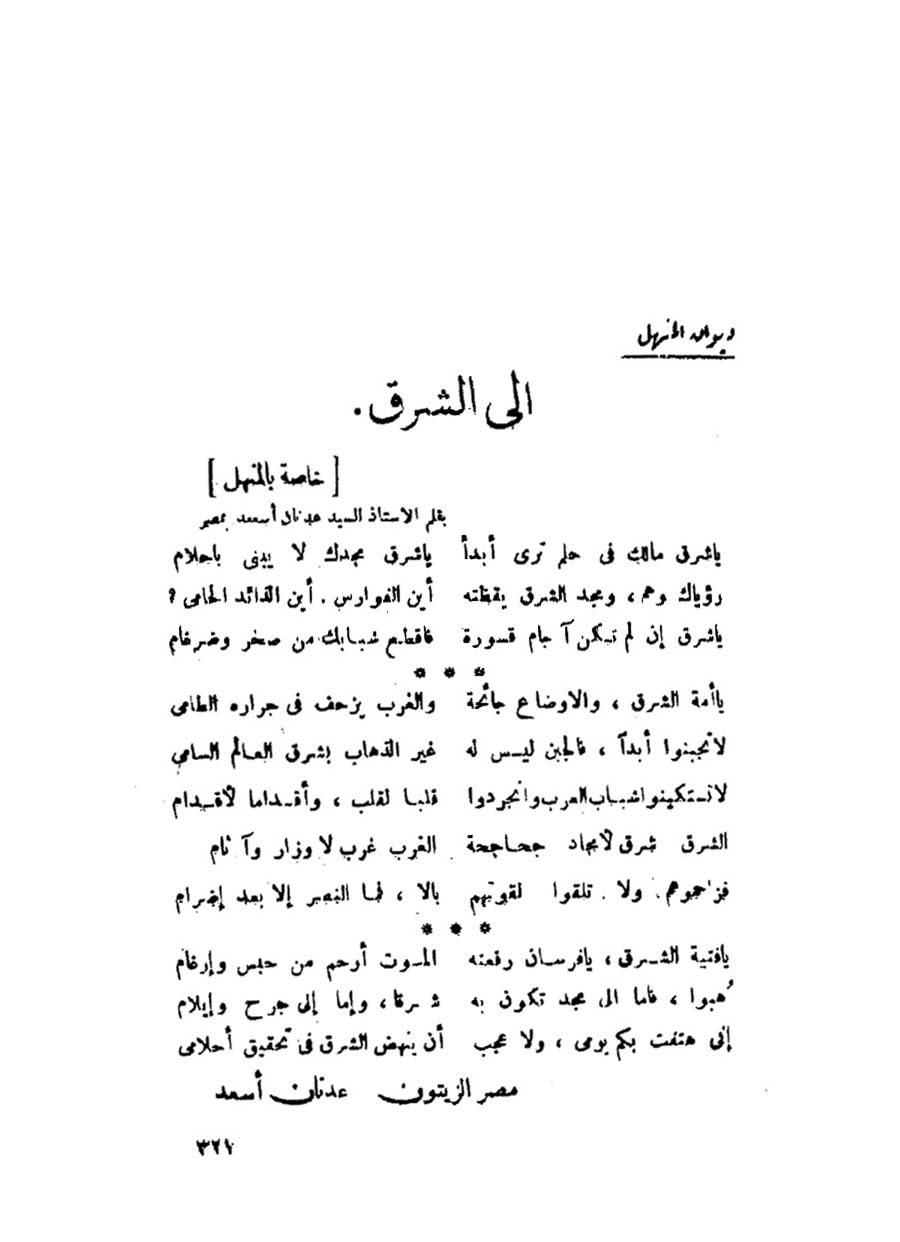 ديوان المنهل
الى الشرق .
[ خاصة بالمنهل ]
بقلم الاستاذ السيد عدنان أسعد بمصر
ياشرق مالك فى حلم ترى أبداً ياشرق مجدك لا يبنى باحلام
رؤياك وهم ، ومجد الشرق يقظته أين الفوارس . أين القائد الحامى ؟
ياشرق إن لم تكن آجام قسورة فاقطع شبابك من صخر وضرغام
* * *
ياأمة الشرق ، والاوضاع جائحة والغرب يزحف فى جراره الطامى
لاتجبنوا أبداً ، فالجبن ليس له غير الذهاب بشرق العالم السامي
لاتستكينوا شباب العرب وانجردوا قلبا لقلب ، وأقداما لأقدام
الشرق شرق لأمجاد جحاجحة الغرب غرب لاوزار وآثام
فزاحموهم . ولا . تلقوا لقوتهم بالا ، فما النصر إلا بعد إضرام
* * *
يافتية الشرق ، يافرسان رفعته الموت أرحم من حبس وإرغام
هُبوا ، فاما الى مجد تكون به شرقا ، وإما إلى جرح وإيلام
إنى هتفت بكم يومى ، ولا عجب أن ينهض الشرق فى تحقيق أحلامى
مصر الزيتون عدنان أسعد
٣٢١